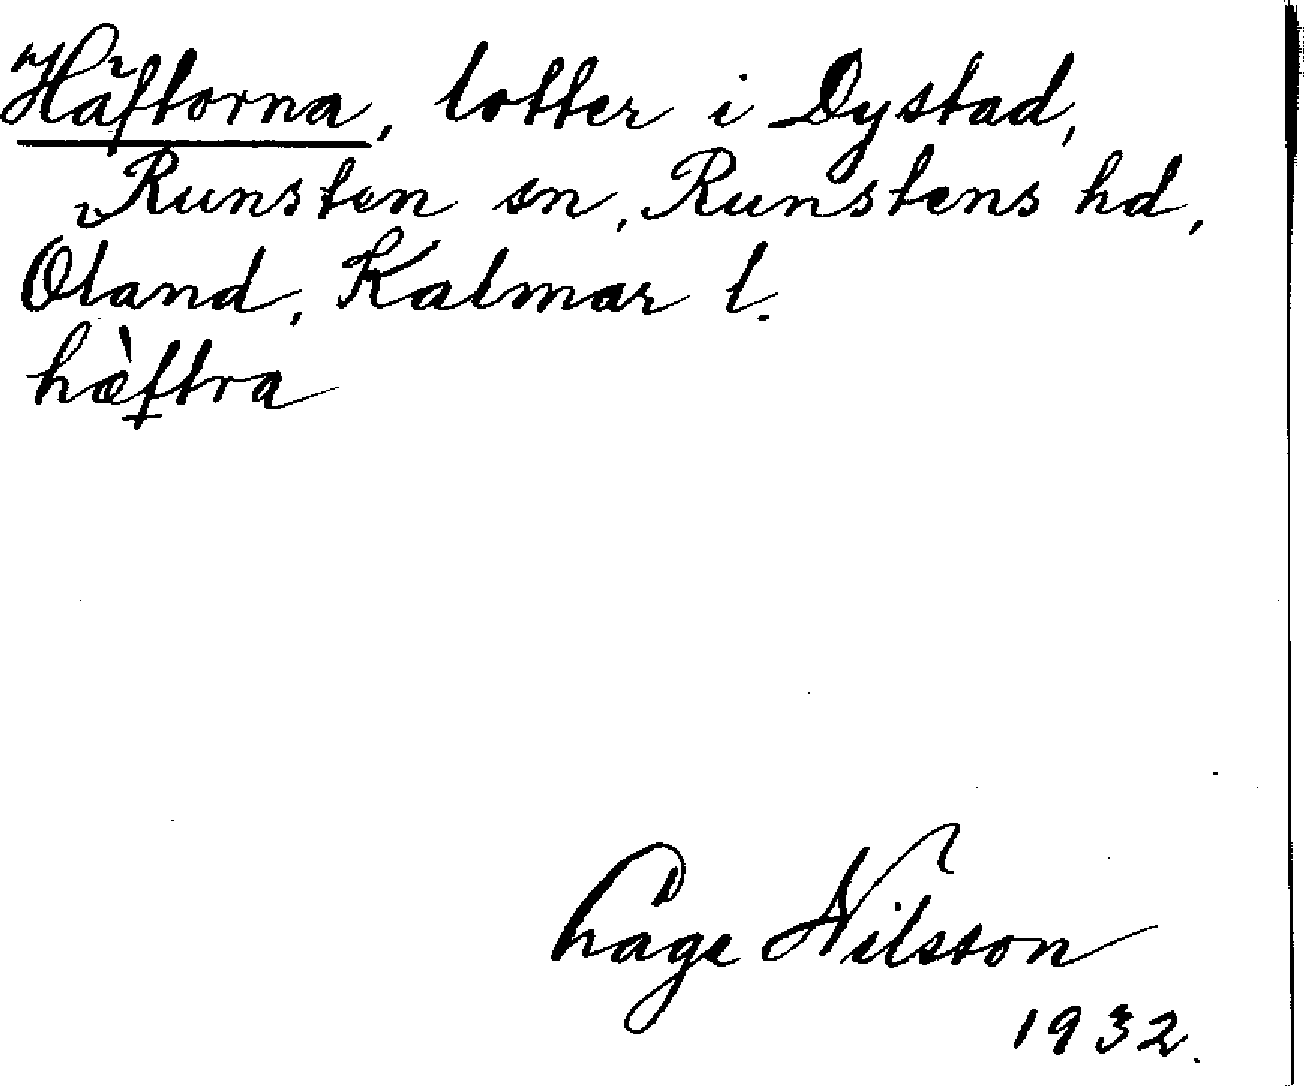 Häftorna, lotter i Dystad,
Runsten sn, Runstens hd,
Öland, Kalmar l.
hæ̀ftra
Låge Nilsson
1932.